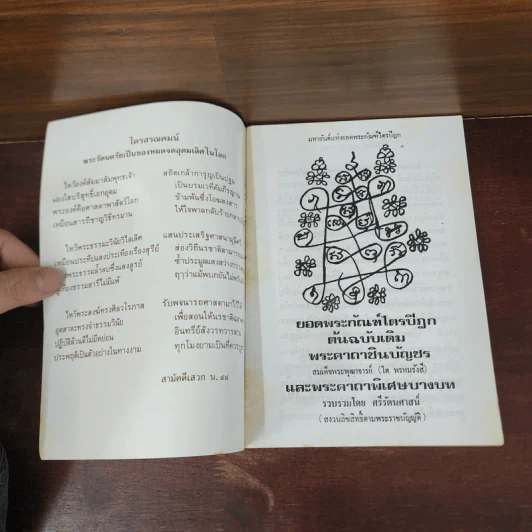 ไตรสรณคมน์
พระรัตนตรัยเป็นของหมดจดอุดมเลิศในโลก
ไหว้องค์สัมมาสัมพุทธเจ้า
ผ่องใสบริสุทธิ์เอกอุดม
พระองค์คือศาสดาพาสัตว์โลก
เหมือนสารถีชาญวิธีทรมาน
ไหว้พระธรรมะวินัยวิไลเลิศ
เหมือนประทีปแสงประเทืองเรืองสุรีย์
พระธรรมล้ำลบซึ่งสูรย์
ไหว้พระสงฆ์ทรงศีลวโรภาส
อุตสาหะทรงจำธรรมวินัย
ปฏิบัติล้วนดีไม่มีหย่อน
ประพฤติเป็นตัวอย่างในทางงาม
สถิตเกล้าการุญเป็นปฐม
เป็นบรมเวทีคัมภีรญาณ
ข้ามพ้นซึ่งโอฆสงสาร
ให้ใจพาล
แสนประเสริฐศาสนา
ส่องวิถีนรชาติ
ซ้ำประมูลแสงสว่าง
ฤๅว่าแม้พบกยันไม่
รับพจนารถศาสดามาไว้ได้
เพื่อสอนให้นรชาติ
อินทรีย์สังวรทวารสาม
ทุกโมงยามเป็นที่ควร
สามัคคีเสวก น. ๔๔
มหายันต์แห่งยอดพระกัณฑ์ไตรปิฎก
ยอดพระกัณฑ์ไตรปิฎก
ต้นฉบับเดิม
พระคาถาชินบัญชร
สมเด็จพระพุฒาจารย์ (โต พรหมรังสี)
และพระคาถาพิเศษบางบท
รวบรวมโดย ศรีรัตนศาสน์
(สงวนลิขสิทธิ์ตามพระราชบัญญัติ)